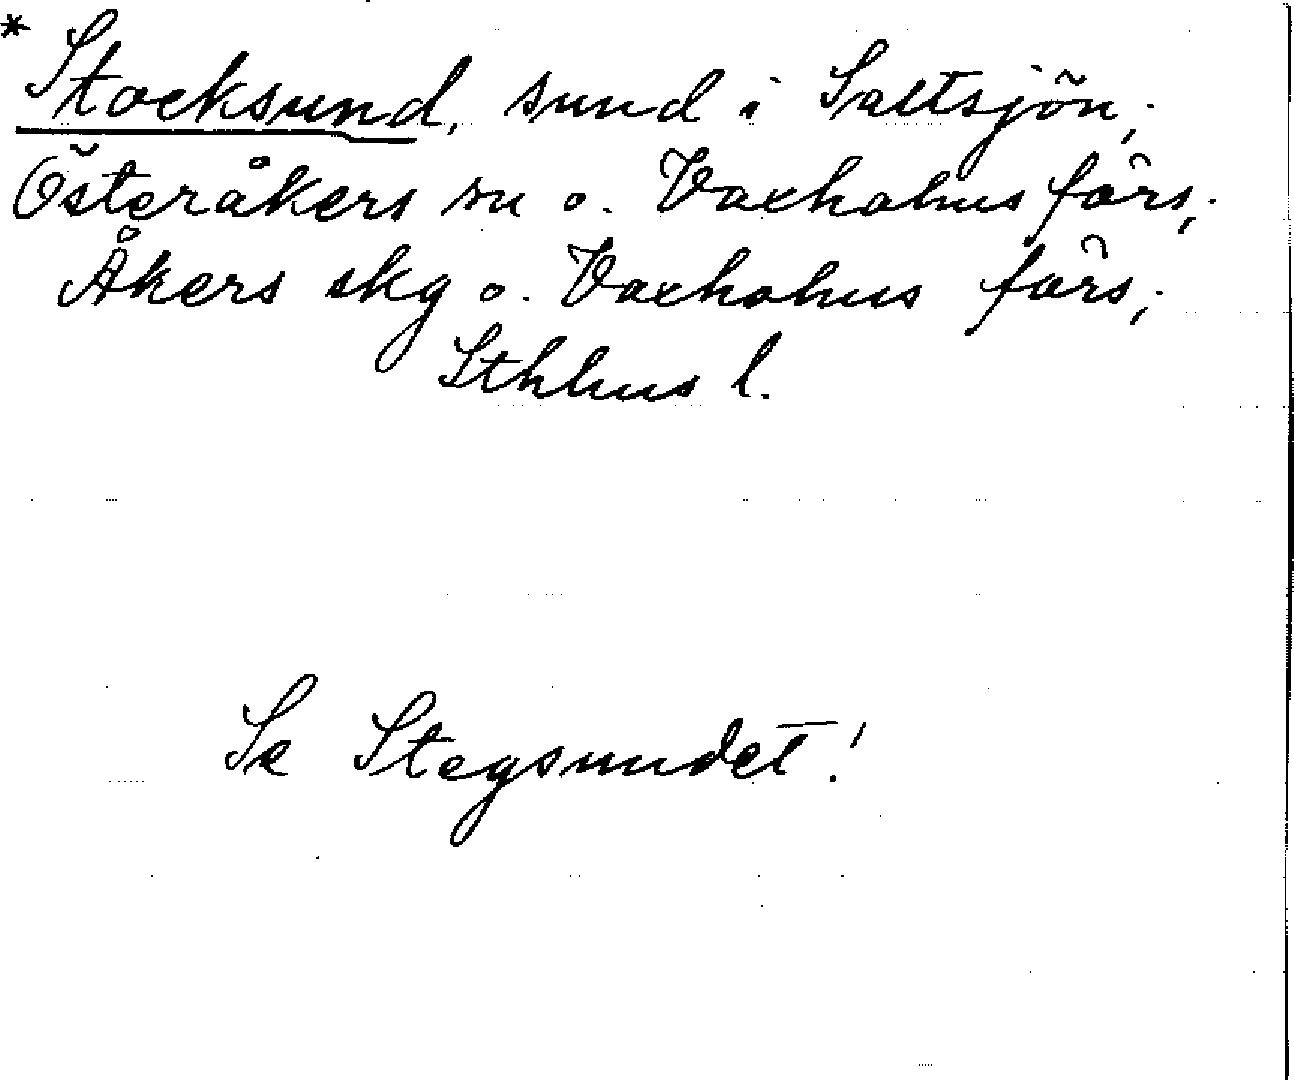 * Stocksund, sund i Saltsjön;
Österåkers sn o. Vaxholms förs.;
Åkers skg o. Vaxholms förs.;
Sthlms l.
Se Stegsundet!